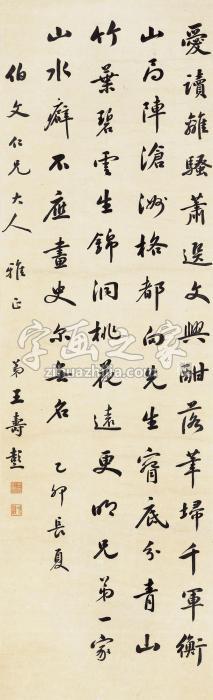 愛讀離騷蕭選文興酣落筆掃千軍衡
山局陣滄洲格都向先生窗底分青山
竹葉碧雲生錦洞桃花遠更明兄弟一家
山水癖不應畫史尔無名 乙卯長夏
伯文仁兄大人雅正 弟王壽彭
字画之家
zihuazhijia.com